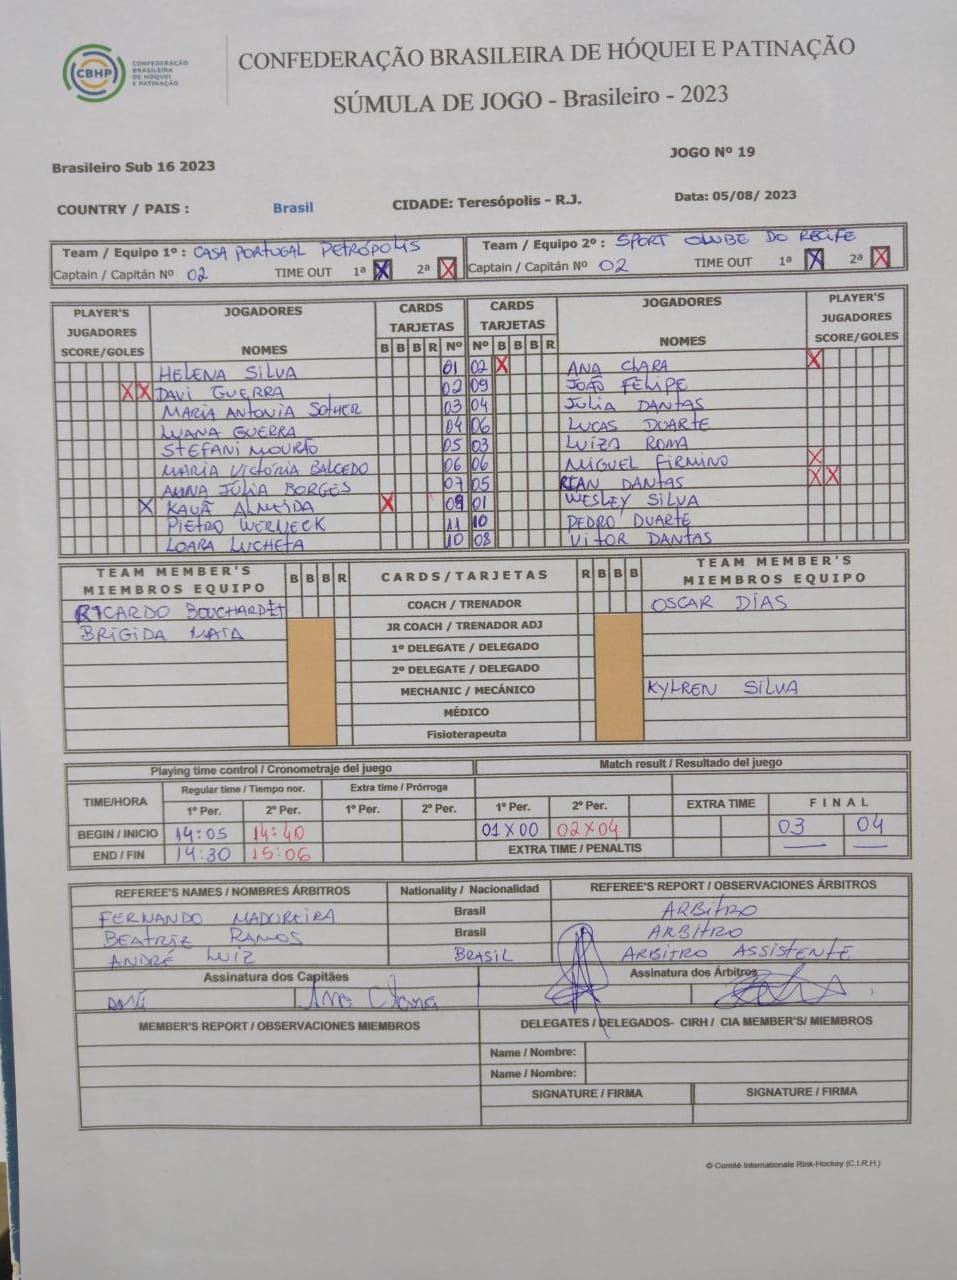 CBHP CONFEDERAÇÃO BRASILEIRA DE HÓQUEI E PATINAÇÃO
CONFEDERAÇÃO BRASILEIRA DE HÓQUEI E PATINAÇÃO
SÚMULA DE JOGO - Brasileiro - 2023
JOGO Nº 19
Brasileiro Sub 16 2023
COUNTRY / PAIS : Brasil CIDADE: Teresópolis - R.J. Data: 05/08/ 2023
Team / Equipo 1º : CASA PORTUGAL PETRÓPOLIS Team / Equipo 2º : SPORT CLUBE DO RECIFE
Captain / Capitán Nº 02 TIME OUT 1ª X 2ª X Captain / Capitán Nº 02 TIME OUT 1ª X 2ª X
PLAYER'S JUGADORES SCORE/GOLES JOGADORES NOMES CARDS TARJETAS B B B R Nº CARDS TARJETAS Nº B B B R JOGADORES NOMES PLAYER'S JUGADORES SCORE/GOLES
HELENA SILVA 01 02 X ANA CLARA X
X X DAVI GUERRA 02 09 JOÃO FELIPE
MARIA ANTONIA 03 04 JULIA DANTAS
LUANA GUERRA 04 06 LUCAS DUARTE
STEFANI MOURÃO 05 03 LUIZA ROMA
MARIA VICTÓRIA BALCEDO 06 06 MIGUEL FIRMINO X
ANNA JÚLIA BORGES 07 05 RIAN DANTAS X X
X KAUÃ ALMEIDA X 09 01 WESLEY SILVA
PIETRO WERNECK 11 10 PEDRO DUARTE
LOARA LUCHETA 10 08 VITOR DANTAS
TEAM MEMBER'S MIEMBROS EQUIPO B B B R CARDS/TARJETAS R B B B TEAM MEMBER'S MIEMBROS EQUIPO
RICARDO BOUCHARDÊT COACH / TRENADOR OSCAR DIAS
BRIGIDA MATA JR COACH / TRENADOR ADJ
1º DELEGATE / DELEGADO
2º DELEGATE / DELEGADO
MECHANIC / MECÁNICO KYLREN SILVA
MÉDICO
Fisioterapeuta
Playing time control / Cronometraje del juego Match result / Resultado del juego
TIME/HORA Regular time / Tiempo nor. Extra time / Prórroga
1º Per. 2º Per. 1º Per. 2º Per. 1º Per. 2º Per. EXTRA TIME FINAL
BEGIN / INICIO 14:05 14:40 01 X 00 02 X 04 03 04
END / FIN 14:30 15:06 EXTRA TIME / PENALTIS
REFEREE'S NAMES / NOMBRES ÁRBITROS Nationality / Nacionalidad REFEREE'S REPORT / OBSERVACIONES ÁRBITROS
FERNANDO MADUREIRA Brasil ARBITRO
BEATRIZ RAMOS Brasil ARBITRO
ANDRÉ LUIZ BRASIL ARBITRO ASSISTENTE
Assinatura dos Capitães Assinatura dos Árbitros
Ana Clara
MEMBER'S REPORT / OBSERVACIONES MIEMBROS DELEGATES / DELEGADOS- CIRH / CIA MEMBER'S/ MIEMBROS
Name / Nombre:
Name / Nombre:
SIGNATURE / FIRMA SIGNATURE / FIRMA
© Comité Internationale Rink-Hockey (C.I.R.H.)